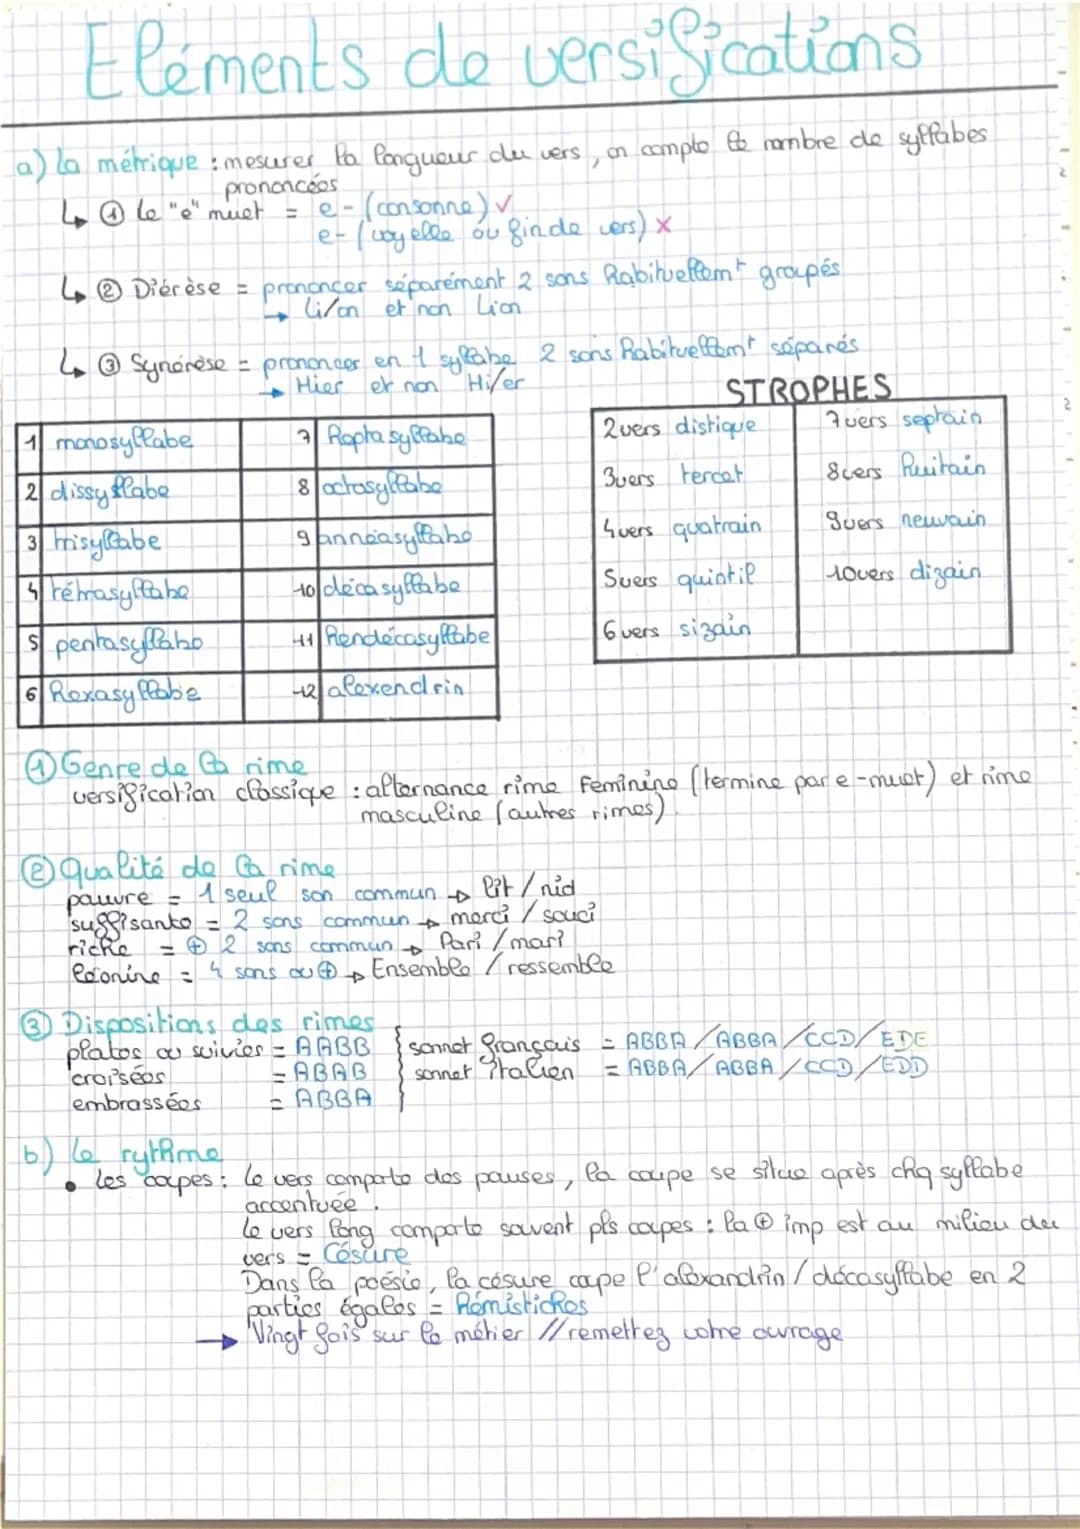 Eléments de versifications
a) la métrique : mesurer la longueur du vers, on compte le nombre de syllabes
prononcées
↳ ① le "e" muet = e - (consonne) ✓
e - (voyelle ou fin de vers) ×
↳ ② Diérèse = prononcer séparément 2 sons habituellemt groupés
→ li/on et non Lion
↳ ③ Synérèse = prononcer en 1 syllabe 2 sons habituellemt séparés
→ Hier et non Hi/er
STROPHES
1 monosyllabe 7 heptasyllabe
2 dissyllabe 8 octosyllabe
3 trisyllabe 9 ennéasyllabe
4 tétrasyllabe 10 décasyllabe
5 pentasyllabe 11 hendécasyllabe
6 hexasyllabe 12 alexendrin
2vers distique 7vers septain
3vers tercet 8vers huitain
4vers quatrain 9vers neuvain
5vers quintil 10vers dizain
6vers sizain
① Genre de la rime
versification classique : alternance rime Feminine (termine par e-muet) et rime
masculine (autres rimes).
② Qualité de la rime
pauvre = 1 seul son commun → lit / nid
suffisante = 2 sons commun → merci / souci
riche = ⊕ 2 sons commun → Pari / mari
léonine = 4 sons ou ⊕ → Ensemble / ressemble
③ Dispositions des rimes
plates ou suivies = AABB { sonnet français = ABBA / ABBA / CCD / EDE
croisées = ABAB sonnet italien = ABBA / ABBA / CCD / EDD
embrassées = ABBA
b) le rythme
• les coupes : le vers comporte des pauses, la coupe se situe après chq syllabe
accentuée.
le vers long comporte souvent pls coupes : la ⊕ imp est au milieu du
vers = Césure
Dans la poésie, la césure coupe l'alexandrin / décasyllabe en 2
parties égales = Hémistiches
→ Vingt fois sur le métier // remettez votre ouvrage